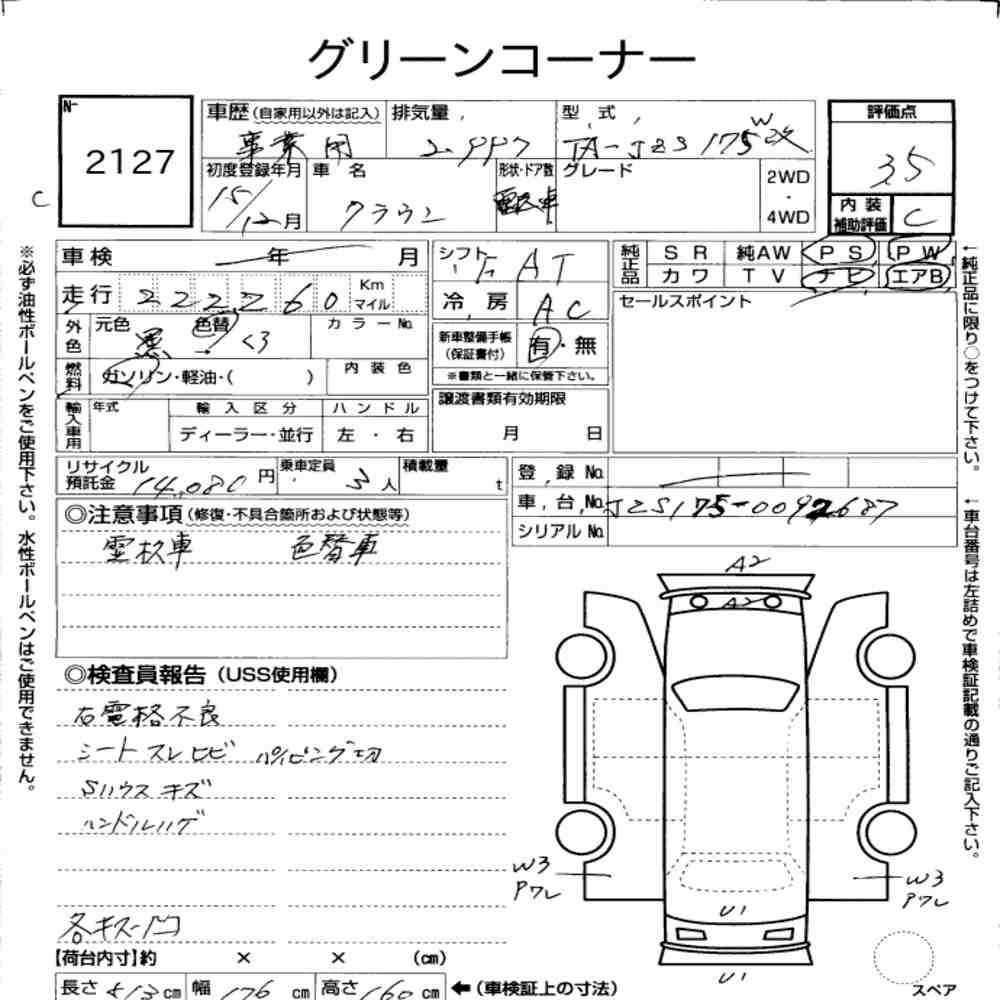 グリーンコーナー
No
2127
C
車歴(自家用以外は記入) 事業用
排気量 2,997
型式 TA-JZS175W改
評価点 3.5
内装補助評価 C
初度登録年月 15/12月
車名 クラウン
形状・ドア数 霊柩車
グレード
2WD・4WD
車検 年 月
走行 222260 Km マイル
外色 元色 黒 色替 <3
カラーNo.
燃料 ガソリン・軽油・( )
内装色
輸入車用 年式
輸入区分 ディーラー・並行
ハンドル 左・右
シフト F AT
冷房 AC
新車整備手帳(保証書付) 有・無
※書類と一緒に保管下さい。
譲渡書類有効期限
月 日
純正品 SR 純AW PS PW
カワ TV ナビ エアB
セールスポイント
リサイクル預託金 14,080円
乗車定員 3人
積載量 t
登録No.
車台No. JZS175-0092687
シリアルNo.
◎注意事項(修復・不具合箇所および状態等)
霊柩車 色替車
◎検査員報告(USS使用欄)
右電格不良
シートスレヒビ パイピング切
Sハウスキズ
ハンドルハゲ
各キズ凹
A2
A2
W3
Pワレ
W3
Pワレ
U1
U1
スペア
【荷台内寸】約 × × (cm)
長さ 513cm 幅 176cm 高さ 160cm ←(車検証上の寸法)
※必ず油性ボールペンをご使用下さい。水性ボールペンはご使用できません。
←純正品に限り○をつけて下さい。
←車台番号は左詰めで車検証記載の通りご記入下さい。